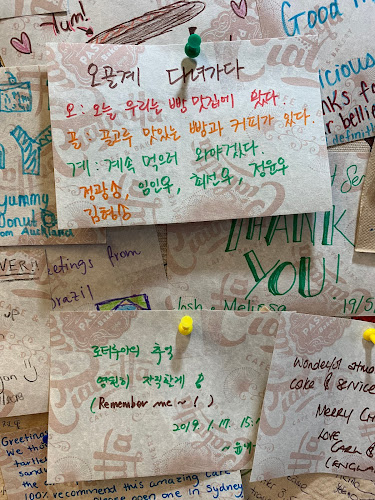 Yum!
Good
icious
nks for
r bellie
definit
오골계 다녀가다
오: 오늘 우리는 빵 맛집에 왔다.
골: 골고루 맛있는 빵과 커피가 왔다.
계: 계속 먹으러 와야겠다.
정광송, 임인욱, 최선욱, 정윤우
yummy
Donut
om Auckland
THANK
YOU!
Josh + Melissa
19/5
VER!!
etings from
brazil
로터루아의 추억
영원히 간직할게
(Remember me ~ !)
2019. 1. 17. 15:
Wonderful
Coke & Service
MERRY CH
LOVE
CARL &
(ENGLAN
Greetin
We th
100% recommend this amazing cafe
please open one in Sydney